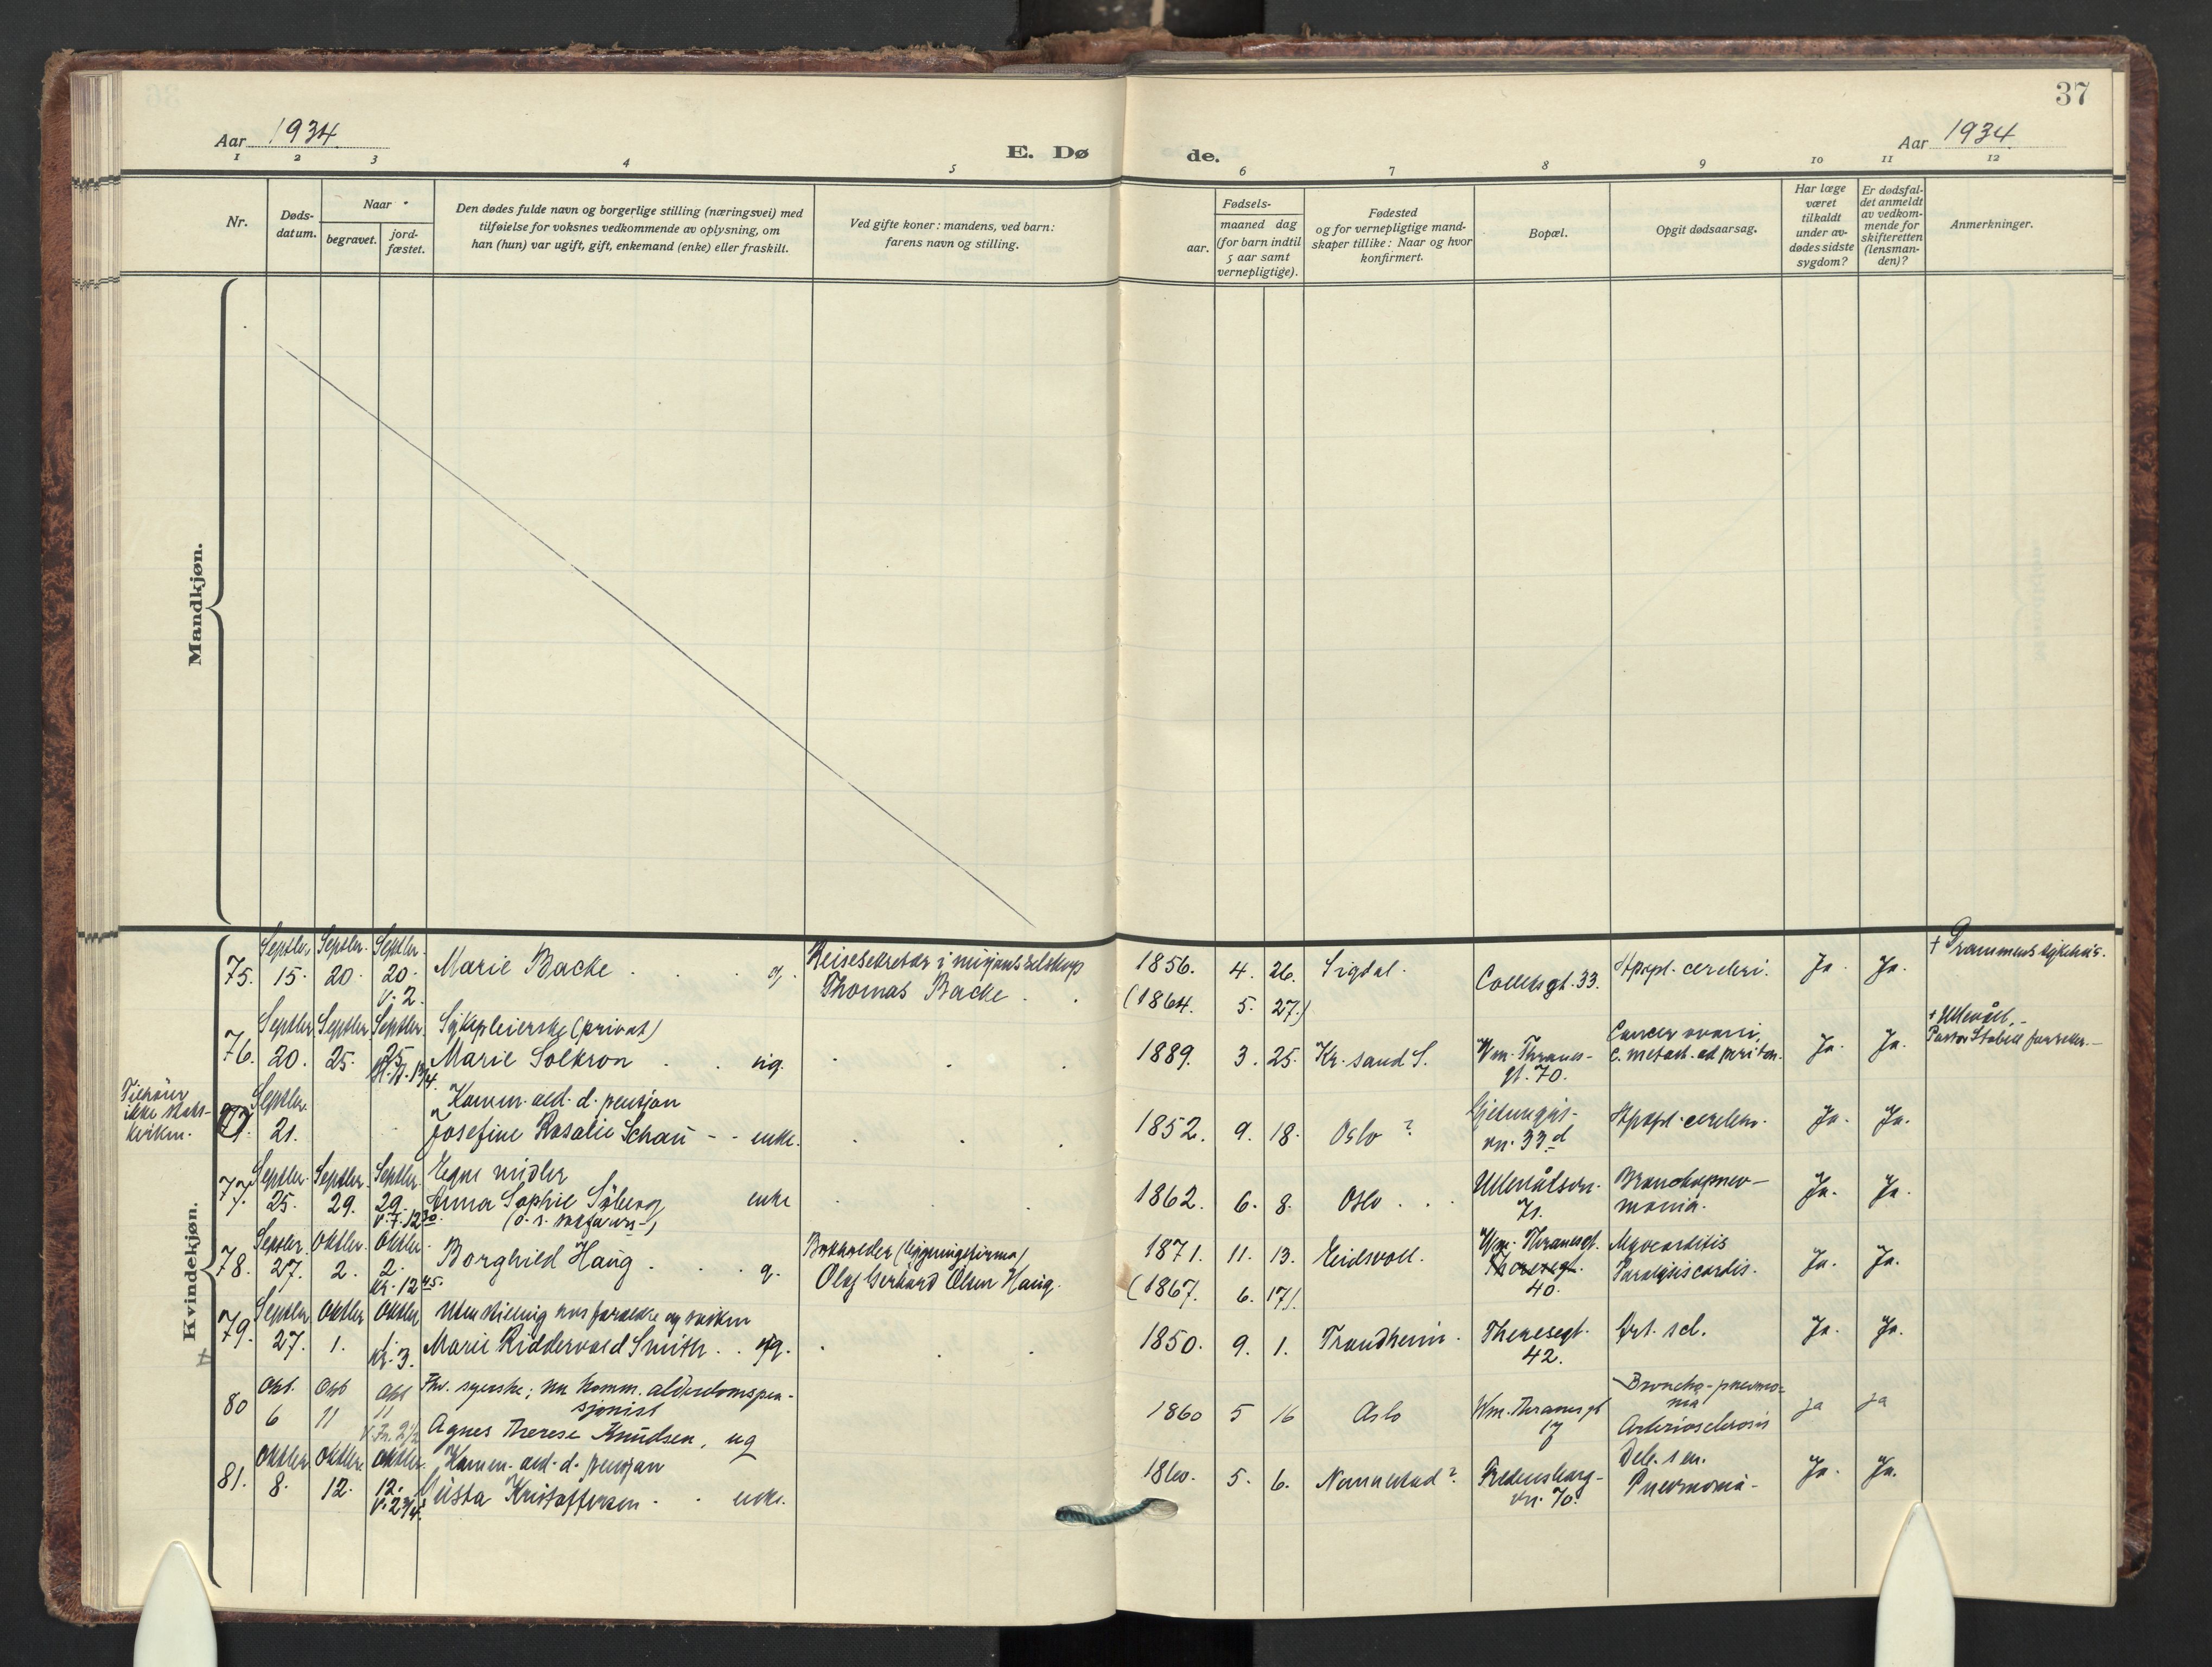 37
Aar 1934
E. Dø
de.
Aar 1934
1 2 3 4 5 6 7 8 9 10 11 12
Nr.
Døds-
datum.
Naar
begravet.
jord-
fæstet.
Den dødes fulde navn og borgerlige stilling (næringsvei) med
tilføielse for voksnes vedkommende av oplysning, om
han (hun) var ugift, gift, enkemand (enke) eller fraskilt.
Ved gifte koner: mandens, ved barn:
farens navn og stilling.
Fødsels-
aar.
maaned dag
(for barn indtil
5 aar samt
vernepligtige).
Fødested
og for vernepligtige mand-
skaper tillike: Naar og hvor
konfirmert.
Bopæl.
Opgit dødsaarsag.
Har læge
været
tilkaldt
under av-
dødes sidste
sygdom?
Er dødsfal-
det anmeldt
av vedkom-
mende for
skifteretten
(lensman-
den)?
Anmerkninger.
Mandkjøn.
Kvindekjøn.
Septbr. Septbr. Septbr. Reisesekretær i misjonsselskap † Drammens sykehus.
75. 15. 20. 20. Marie Backe g. Thomas Backe 1856. 4. 26. Sigdal. Colletsgt. 33. Apopl. cerebri. Ja. Ja.
V. 2. (1864. 5. 27.)
Septbr. Septbr. Septbr. Sykepleierske (privat) Cancer ovarii, † Ullevål.
76. 20. 25. 25. Marie Solkron ug. 1889. 3. 25. Kr.sand S. Wm. Thranes- c. metast. ad periton. Ja. Ja. Pastor
gt. 70.
Tilhører
ikke stats-
kirken.
Septbr. Komm. ald. d. pensjon Gjetemyrs-
21. Josefine Rosalie Schau enke. 1852. 9. 18. Oslo ? vn. 33 d Apopl. cerebri. Ja. Ja.
Septbr. Septbr. Septbr. Egne midler
77. 25. 29. 29. Anna Sophie Söberg enke 1862. 6. 8. Oslo Ullevålsvn. Bronchopneu-
V. F. 12 30. 71. monia. Ja. Ja.
Septbr. Oktbr. Oktbr. Bokholder Wm. Thranesgt. Myocarditis
78. 27. 2. 2. Borghild Haug g. Olaf Gerhard Olsen Haug. 1871. 11. 13. Eidsvoll. Theresegt. Paralysis cordis. Ja. Ja.
Kr. 12 45. (1867. 6. 17). 40.
Septbr. Oktbr. Oktbr. Uten stilling hos foreldre og søsken
79. 27. 1. 1. Marie Riddervold Smith ug. 1850. 9. 1. Trondheim. Theresegt. Art. scl. Ja. Ja.
Kr. 3. 42.
Okt. Okt Okt Fhv. syerske; nu komm. alderdomspen- Broncho-pneumo-
sjonist nia
80 6 11 11 Agnes Therese Knudsen, ug 1860 5 16 Oslo Wm. Thranesgt Arteriosclerosis ja ja
V. Fr. 2 1/2 17
Oktbr. Oktbr. Oktbr. Komm. ald. d. pensjon Deb. sen.
81. 8. 12. 12. Gusta Kristoffersen enke. 1860. 5. 6. Nannestad? Fredensborg- Pneumonia Ja. Ja.
V. 2 3/4. vn. 70.